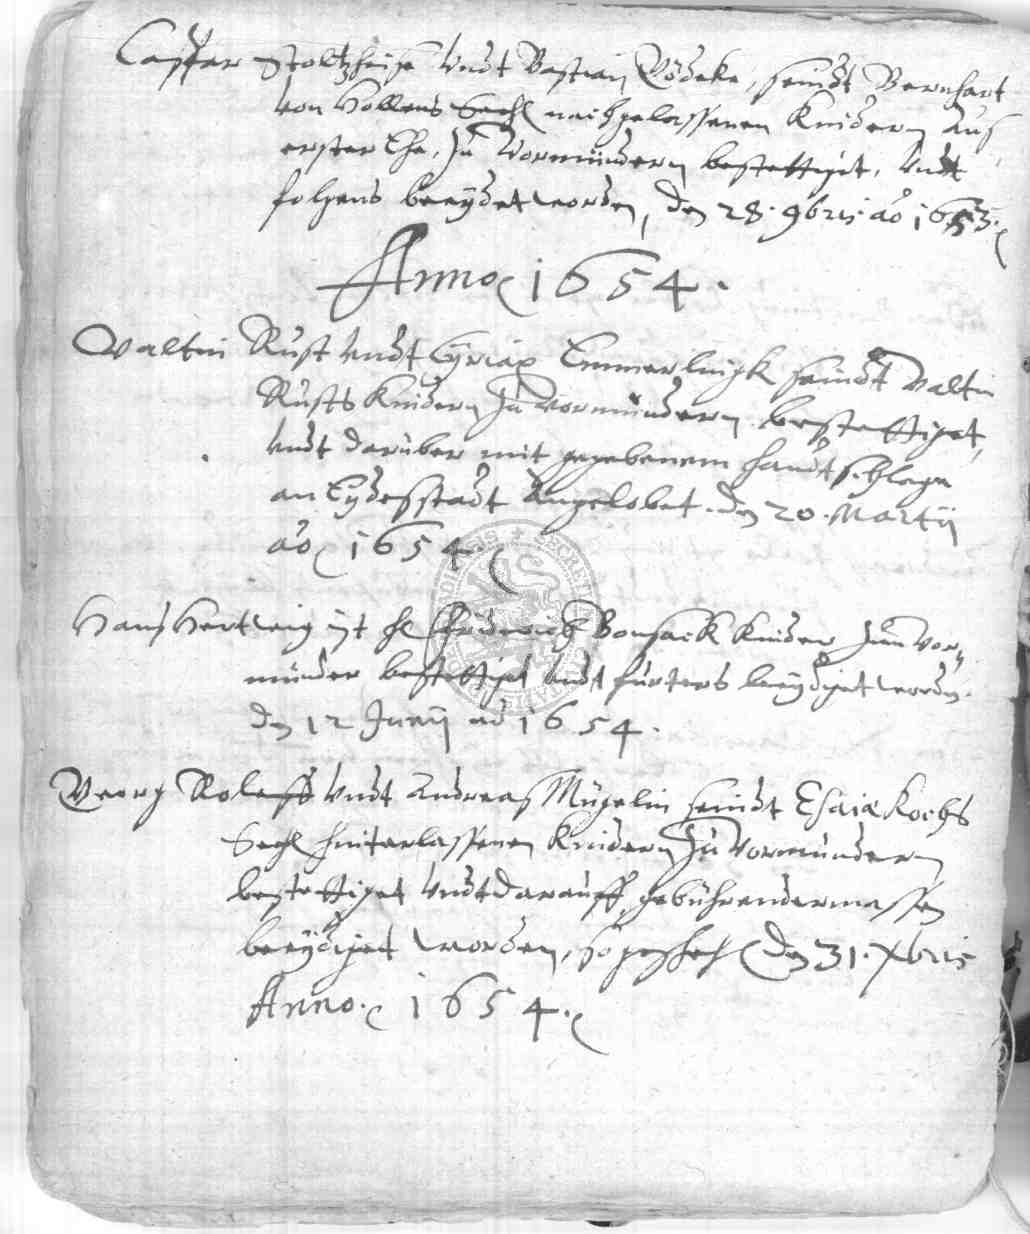 Caspar Stoltzheise undt Bastian Lödeke, seindt Bernhart
von Hollens Sehl nachgelassenen Kindern aus
erster Ehe, zu Vormündern bestettiget, undt
folgens beeydet worden, den 28. 9bris ao 1653.
Anno 1654.
Valtin Rust undt Cyriax Emmerlingk seindt Valtin
Rusts Kindern zu Vormündern bestettiget,
undt darüber mit gegebenem handtschlage
an Eydesstadt Angelobet. den 20. Martij
ao 1654.
Hans Hertwig ist Friderich Bonsack Kinder zum Vor-
münder bestettiget undt furters beeydiget worden.
den 12 Junij ao 1654.
Georg Roleff undt Andreas Mügelin seindt Esaiæ Kochs
Sehl hinterlassenen Kindern zu Vormündern
bestettiget undt darauff gebührendermassen
beeydiget worden, so geschehen den 31. Xbris
Anno. 1654.